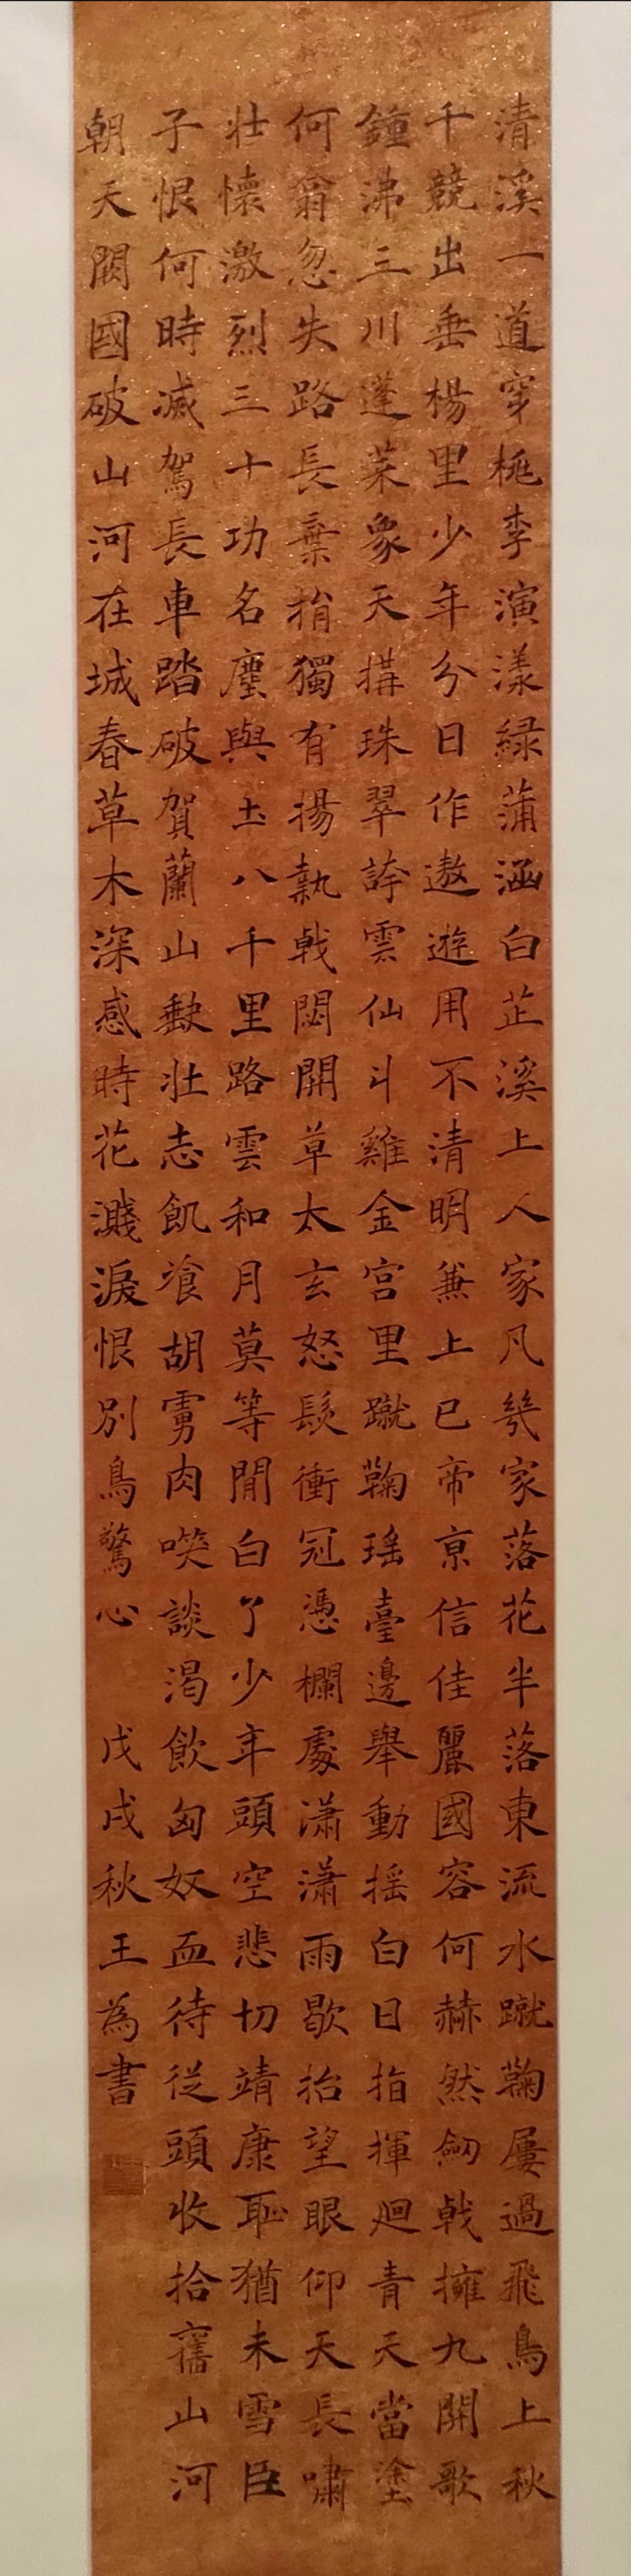 清溪一道穿桃李演漾綠蒲涵白芷溪上人家凡幾家落花半落東流水蹴鞠屢過飛鳥上秋
千競出垂楊里少年分日作遨遊用不清明兼上巳帝京信佳麗國容何赫然劒戟擁九關歌
鐘沸三川蓬萊象天搆珠翠誇雲仙斗雞金宮里蹴鞠瑤臺邊舉動搖白日指揮迴青天當塗
何翕忽失路長棄捐獨有揚執戟閟關草太玄怒髮衝冠憑欄處瀟瀟雨歇抬望眼仰天長嘯
壯懷激烈三十功名塵與土八千里路雲和月莫等閒白了少年頭空悲切靖康恥猶未雪臣
子恨何時滅駕長車踏破賀蘭山缺壯志飢飡胡虜肉笑談渴飲匈奴血待從頭收拾舊山河
朝天闕國破山河在城春草木深感時花濺淚恨別鳥驚心 戊戌秋王為書